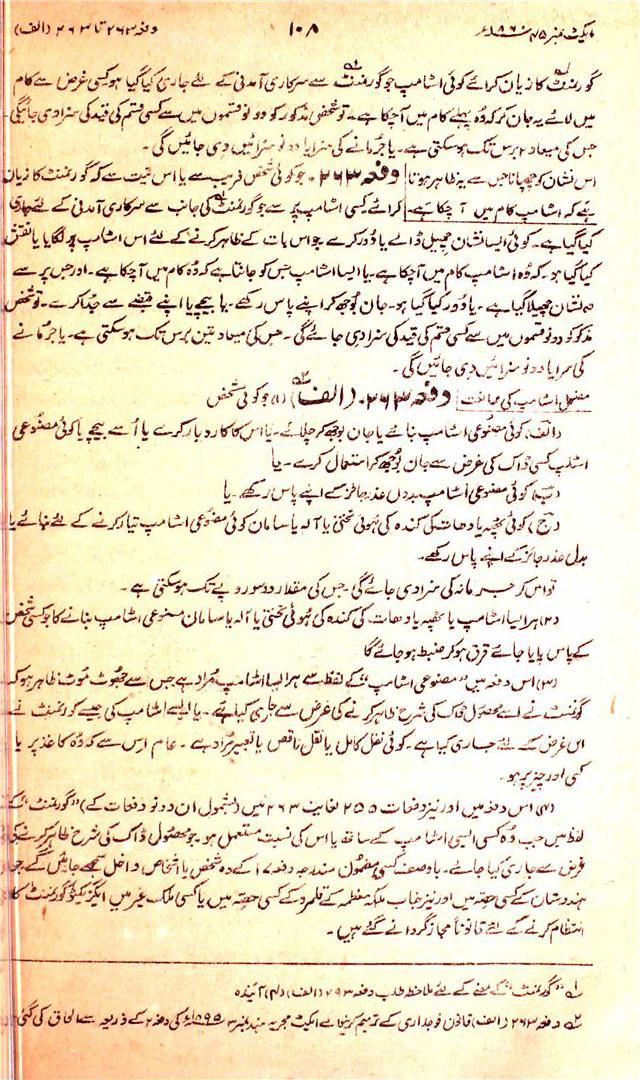 ایکٹ نمبر ۴۵ ۱۸۶۰ء ۱۰۸ دفعہ ۲۶۳ تا ۲۶۳ (الف)
گورنمنٹ کا زیان کرائے کوئی اشامپ جو گورنمنٹ سے سرکاری آمدنی کے لئے جاری کیا گیا ہو کسی غرض سے کام
میں لائے یہ جان کر کہ وُہ پہلے کام میں آچکا ہے۔ تو شخص مذکور کو دونو قسموں میں سے کسی قسم کی قید کی سزا دی جائیگی۔
جس کی میعاد ۲ برس تک ہوسکتی ہے۔ یا جرمانے کی سزا یا دونو سزائیں دی جائیں گی ۔
اس نشان کو چھپانا جس سے یہ ظاہر ہوتا دفعہ ۲۶۳۔ جو کوئی شخص فریب سے یا اس نیت سے کہ گورنمنٹ کا زیان
ہے کہ اشامپ کام میں آ چکا ہے۔ کرائے کسی اشامپ پر سے جو گورنمنٹ کی جانب سے سرکاری آمدنی کے لئے جاری
کیا گیا ہے۔ کوئی ایسا نشان چھیل ڈالے یا دُور کرے جو اس بات کے ظاہر کرنے کے لئے اس اشامپ پر لگایا یا نقش
کیا گیا ہو۔ کہ وُہ اشامپ کام میں آچکا ہے۔ یا ایسا اشامپ جس کو جانتا ہے کہ وُہ کام میں آچکا ہے۔ اور جس پر سے
وہ نشان چھیلا گیا ہے ۔ یا دُور کیا گیا ہو۔ جان بُوجھ کر اپنے پاس رکھے۔ یا بیچے یا اپنے قبضے سے جُدا کرے۔ تو شخص
مذکور کو دونو قسموں میں سے کسی قسم کی قید کی سزا دی جائے گی ۔ جس کی میعاد تین برس تک ہوسکتی ہے۔ یا جرمانے
کی سزا یا دونو سزائیں دی جائیں گی ۔
مصنوعی اشامپ کی ممانعت دفعہ ۲۶۳۔ (الف) (۱) جو کوئی شخص
(الف) کوئی مصنوعی اشامپ بنائے یا جان بوجھ کر چلائے۔ یا اس کا کاروبار کرے یا اُسے بیچے یا کوئی مصنوعی
اشامپ کسی ڈاک کی غرض سے جان بُوجھ کر استعمال کرے۔ یا
(ب) کوئی مصنوعی اشامپ بدوں عذر جائز کے اپنے پاس رکھے۔ یا
(ج) کوئی ٹھپہ یا دھات کی کندہ کی ہوئی تختی یا آلہ یا سامان کوئی مصنوعی اشامپ تیار کرنے کے لئے بنائے یا
بدل عذر جائز کے اپنے پاس رکھے۔
تو اس کو جرمانہ کی سزا دی جائے گی ۔ جس کی مقدار دو سو روپے تک ہوسکتی ہے ۔
(۲) ہر ایسا اشامپ یا ٹھپہ یا دھات کی کندہ کی ہُوئی تختی یا آلہ یا سامان مصنوعی اشامپ بنانے کا جو کسی شخص
کے پاس پایا جائے قرق ہو کر ضبط ہو جائے گا
(۳) اس دفعہ میں "مصنوعی اشامپ" کے لفظ سے ہر ایسا اشامپ مُراد ہے جس سے جھُوٹ مُوٹ ظاہر ہو کہ
گورنمنٹ نے اسے محصول ڈاک کی شرح ظاہر کرنے کی غرض سے جاری کیا ہے۔ یا ایسے اشامپ کی جسے گورنمنٹ نے
اس غرض کے لئے جاری کیا ہے۔ کوئی نقل کامل یا نقل ناقص یا تعبیر مُراد ہے ۔ عام اس سے کہ وُہ کاغذ پر یا
کسی اور چیز پر ہو۔
(۴) اس دفعہ میں اور نیز دفعات ۲۵۵ لغایت ۲۶۳ میں (بشمول ان دونو دفعات کے) "گورنمنٹ" کے
لفظ میں جب وُہ کسی ایسے اشامپ کے ساتھ یا اس کی نسبت مستعمل ہو۔ جو محصول ڈاک کی شرح ظاہر کرنے کی
غرض سے جاری کیا جائے۔ باوصف کسی مضمون مندرجہ دفعہ ۱۷ کے وہ شخص یا اشخاص داخل سمجھے جائیں گے جو
ہندوستان کے کسی حصّہ میں اور نیز جناب ملکہ معظمہ کے قلمرو کے کسی حصّہ میں یا کسی ملک غیر میں ایگزیکٹو گورنمنٹ کا
انتظام کرنے کے لئے قانوناً مجاز گردانے گئے ہیں ۔
۱؎ "گورنمنٹ" کے معنے کے لئے ملاحظہ طلب دفعہ ۲۹۳ (الف) (۴) آیندہ
۲؎ دفعہ ۲۶۳ (الف) قانون فوجداری کے ترمیم کرنیوالے ایکٹ مجریہ ہند نمبر ۳ ۱۸۹۵ء کی دفعہ ۲ کے ذریعہ سے الحاق کی گئی